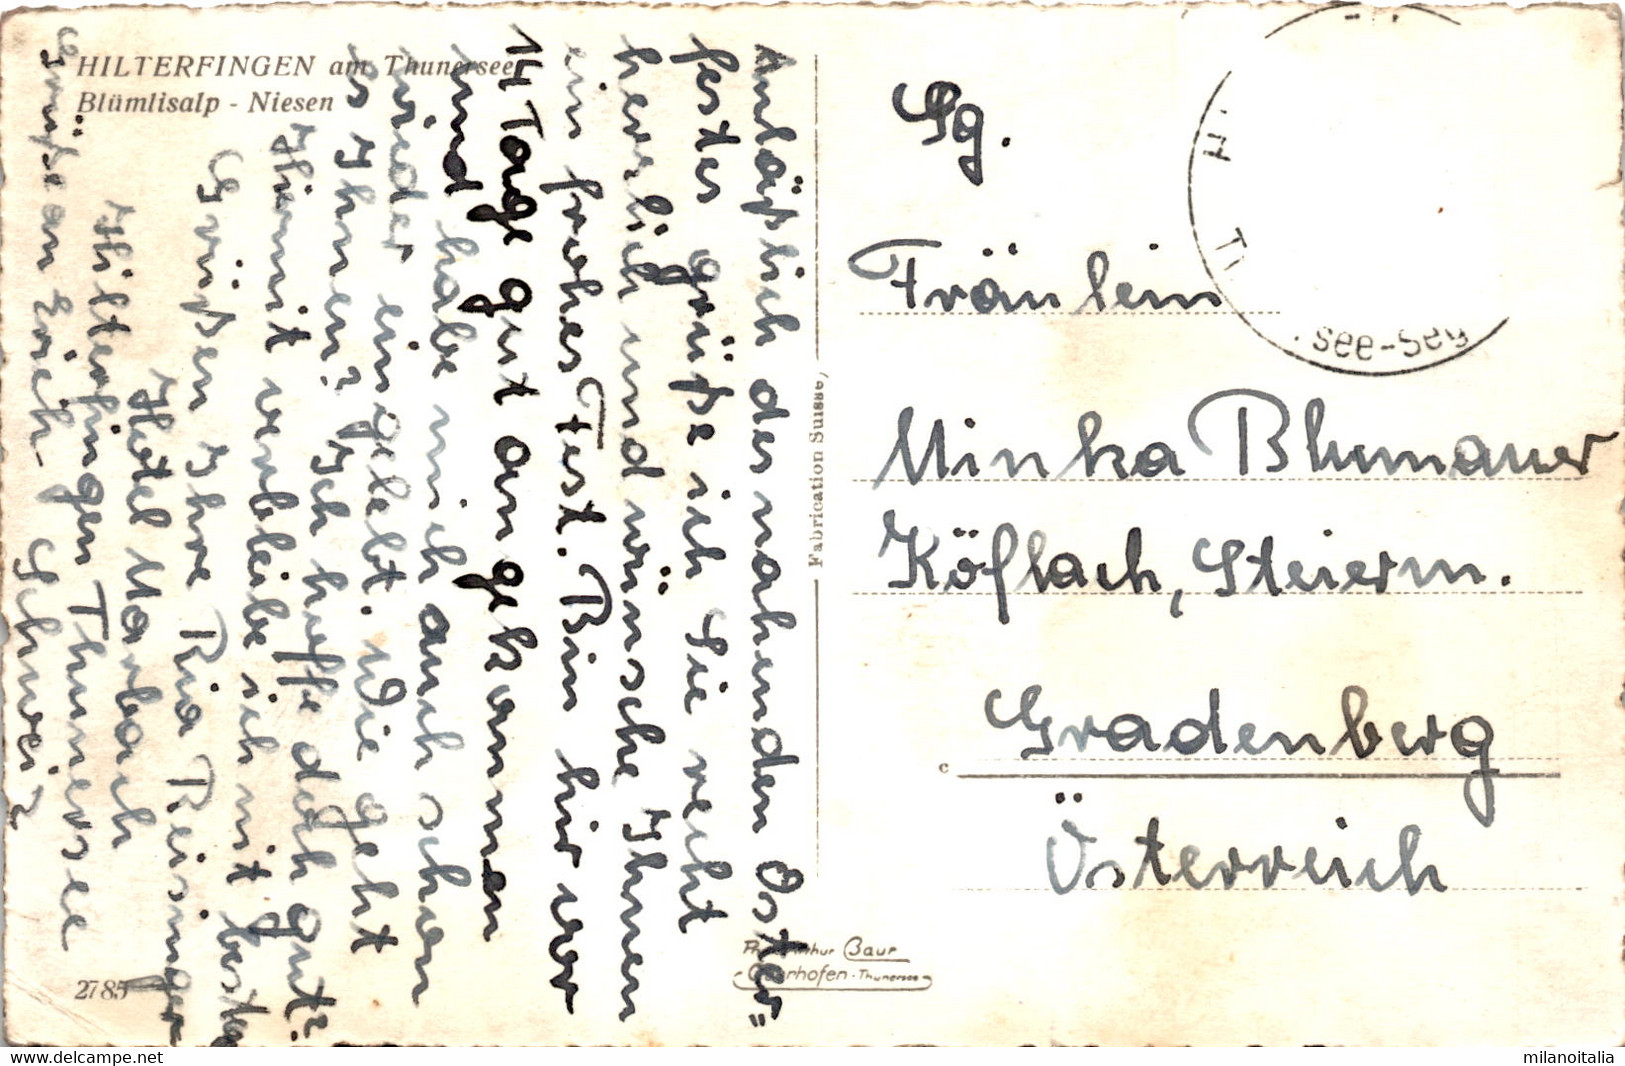 HILTERFINGEN am Thunersee
Blümlisalp - Niesen
Anläßlich des nahenden Oster=
festes grüße ich Sie recht
herzlich und wünsche Ihnen
ein frohes Fest. Bin hir vor
14 Tage gut angekommen
und habe mich auch schon
wieder eingelebt. Wie geht
es Ihnen? Ich hoffe doch gut?
Hiermit verbleibe ich mit besten
Grüßen Ihre Ria Reisinger
Hotel Marbach
Hilterfingen Thunersee
Schweiz
Grüße an Erich
Fabrication Suisse
Sg.
Fräulein
Minka Blumauer
Köflach, Steierm.
Gradenberg
Österreich
see-Seg
Phot. Arthur Baur
Oberhofen - Thunersee
2785
milanoitalia
delcampe.net